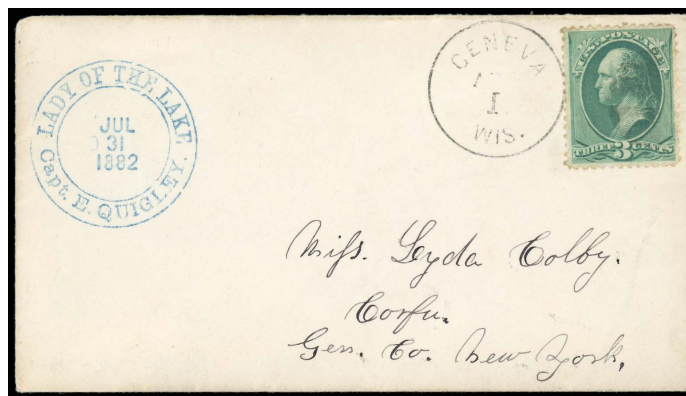 LADY OF THE LAKE
JUL
31
1882
Capt. E. QUIGLEY.
GENEVA
1
WIS.
U.S. POSTAGE
THREE 3 CENTS
Miss. Lyda Colby.
Corfu.
Gen. Co. New York.